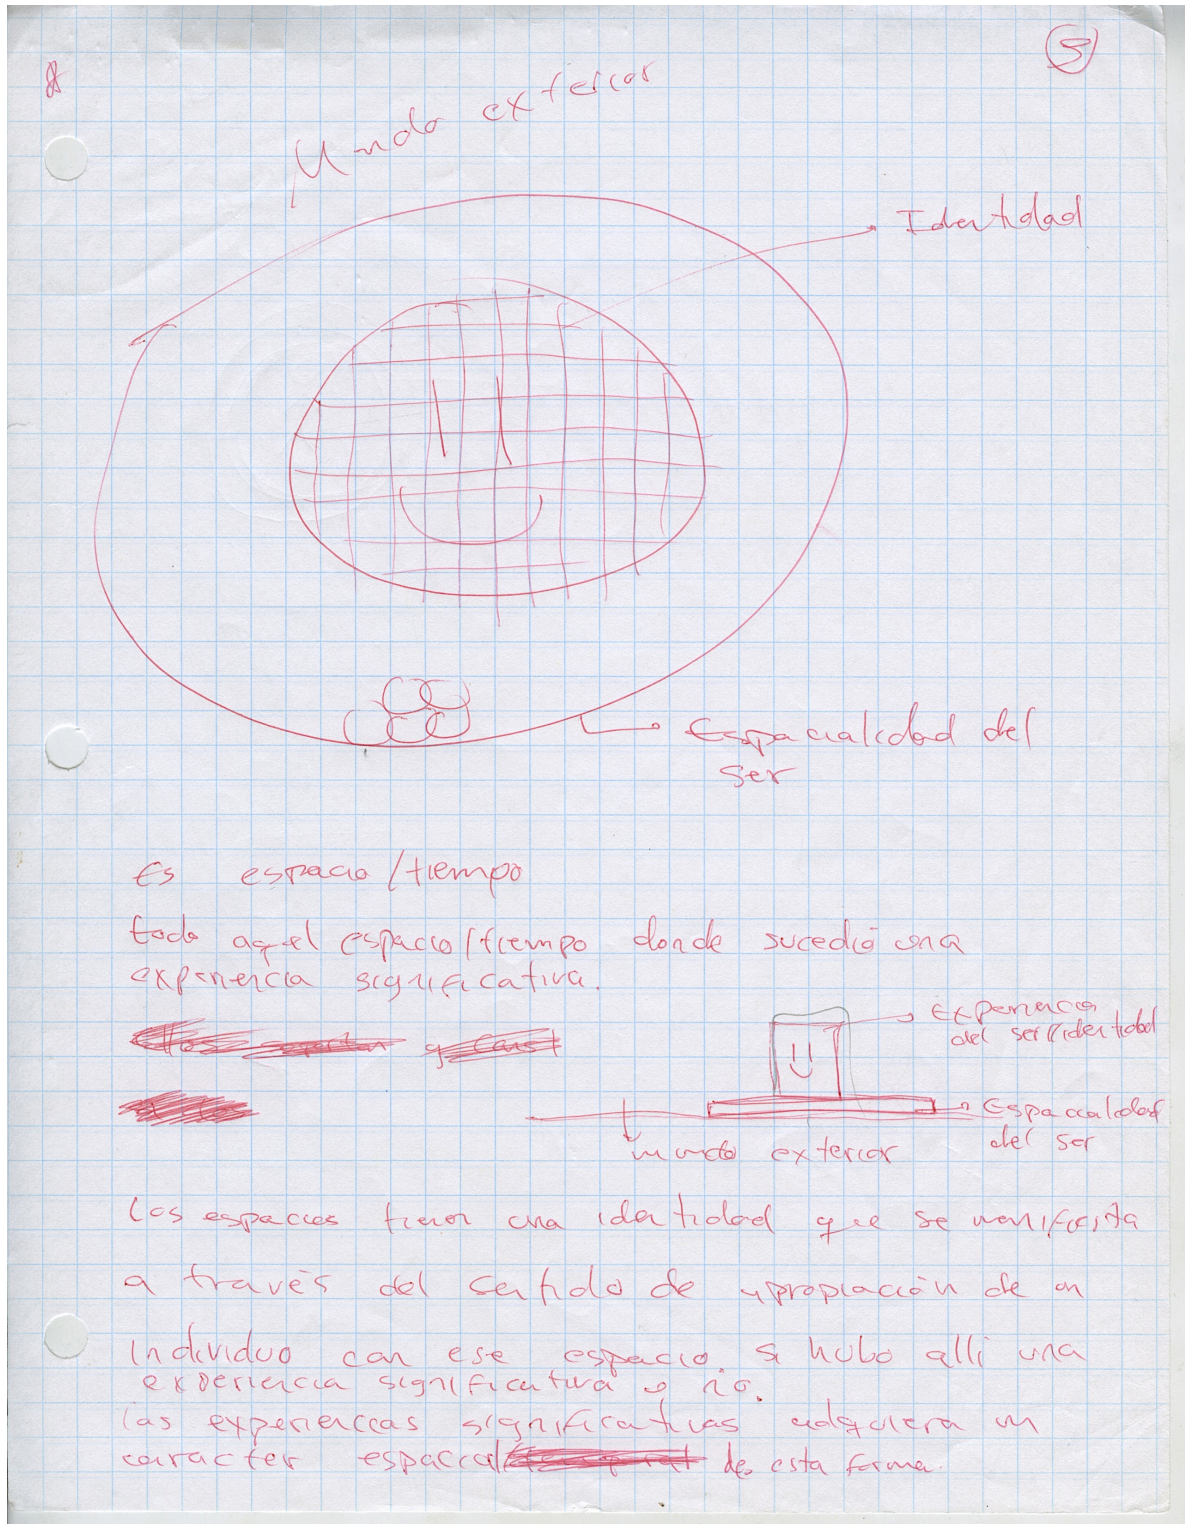 5
Mundo exterior
Identidad
Espacialidad del
ser
Es espacio/tiempo
todo aquel espacio/tiempo donde sucedió una
experiencia significativa.
Experiencia
del ser/identidad
Espacialidad
del ser
mundo exterior
Los espacios tienen una identidad que se manifiesta
a través del sentido de apropiación de un
Individuo con ese espacio. si hubo alli una
experiencia significativa o no.
las experiencias significativas adquieren un
caracter espacial de esta forma.